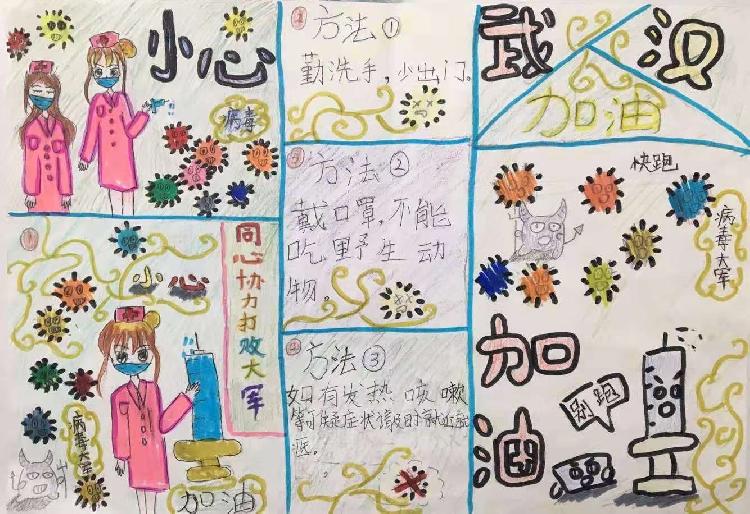 小心
病毒
小心
同心协力打败大军
病毒大军
加油
方法①
勤洗手，少出门。
方法②
戴口罩，不能
吃野生动
物。
方法③
如有发热咳嗽
等可疑症状请及时就近就
医。
武汉
加油
快跑
病毒大军
加油
别跑